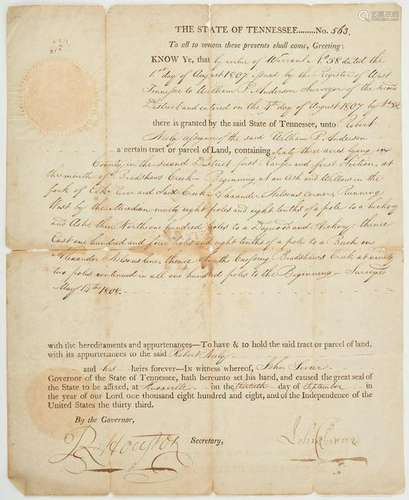 THE STATE OF TENNESSEE.........No. 563.
To all to whom these presents shall come, Greeting:
KNOW Ye, that by virtue of Warrant No 58 dated the
1st day of August 1807 by the Register of West
Tennessee to William P. Anderson Surveyor of the
District and entered on the day of August 1807 by No
there is granted by the said State of Tennessee, unto Robert
assignee of the said William P. Anderson
a certain tract or parcel of Land, containing Sixty three acres lying in
County in the second District first range and first section, at
the mouth of Bradshaws Creek Beginning at an Ash and
fork of Elk River and said Creek Alexander corner Running
West by the ninety eight poles and eight tenths of a pole to a hickory
and Ash thence North one hundred poles to a Dogwood and hickory thence
East one hundred and four poles and eight tenths of a pole to a
Alexander line thence South Crossing Bradshaws Creek at ninety
two poles continued in all one hundred poles to the Beginning Surveyed
May 1808.
with the hereditaments and appurtenances—To have & to hold the said tract or parcel of land,
with its appurtenances to the said Robert
and his heirs forever—In witness whereof, John Sevier
Governor of the State of Tennessee, hath hereunto set his hand, and caused the great seal of
the State to be affixed, at on the day of September in
the year of our Lord one thousand eight hundred and eight, and of the Independence of the
United States the thirty third.
By the Governor,
R Houston Secretary, John Sevier